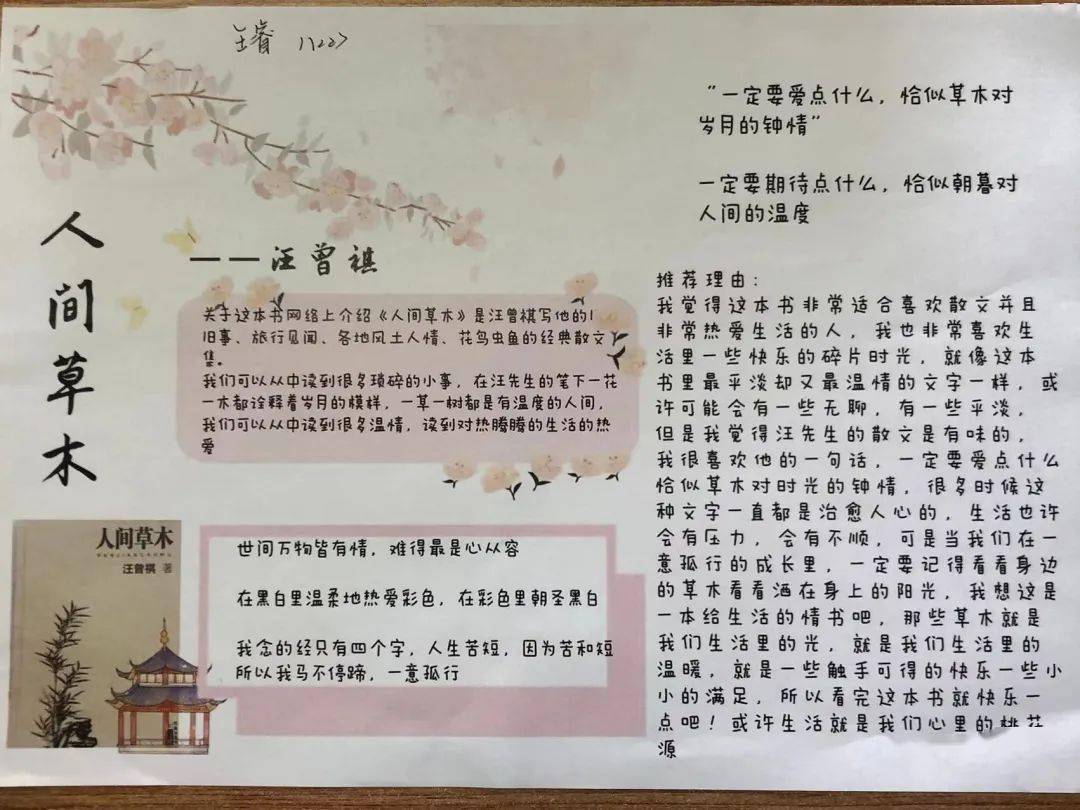 王睿 11227
“一定要爱点什么，恰似草木对
岁月的钟情”
一定要期待点什么，恰似朝暮对
人间的温度
人间草木
——汪曾祺
关于这本书网络上介绍《人间草木》是汪曾祺写他的1
旧事、旅行见闻、各地风土人情、花鸟虫鱼的经典散文
集。
我们可以从中读到很多琐碎的小事，在汪先生的笔下一花
一木都诠释着岁月的模样，一草一树都是有温度的人间，
我们可以从中读到很多温情，读到对热腾腾的生活的热
爱
人间草木
汪曾祺 著
世间万物皆有情，难得最是心从容
在黑白里温柔地热爱彩色，在彩色里朝圣黑白
我念的经只有四个字，人生苦短，因为苦和短
所以我马不停蹄，一意孤行
推荐理由：
我觉得这本书非常适合喜欢散文并且
非常热爱生活的人，我也非常喜欢生
活里一些快乐的碎片时光，就像这本
书里最平淡却又最温情的文字一样，或
许可能会有一些无聊，有一些平淡，
但是我觉得汪先生的散文是有味的，
我很喜欢他的一句话，一定要爱点什么
恰似草木对时光的钟情，很多时候这
种文字一直都是治愈人心的，生活也许
会有压力，会有不顺，可是当我们在一
意孤行的成长里，一定要记得看看身边
的草木看看洒在身上的阳光，我想这是
一本给生活的情书吧，那些草木就是
我们生活里的光，就是我们生活里的
温暖，就是一些触手可得的快乐一些小
小的满足，所以看完这本书就快乐一
点吧！或许生活就是我们心里的桃花
源